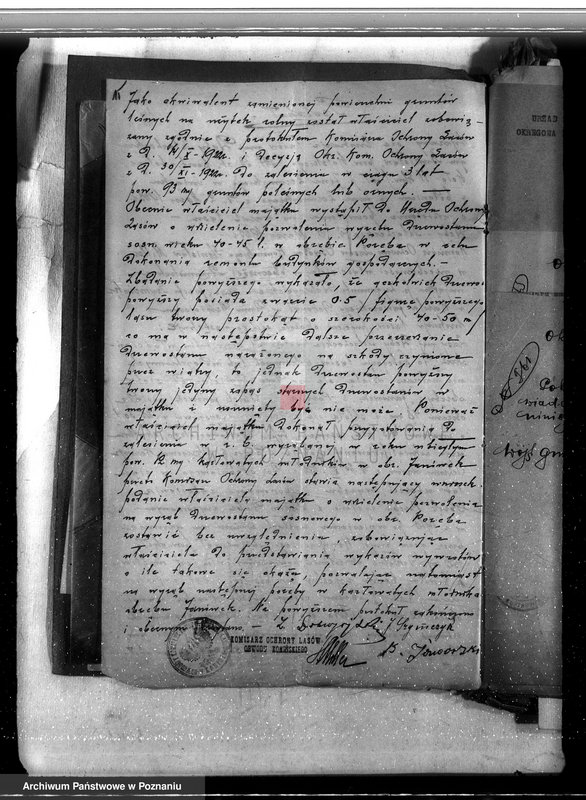 Jako ekwiwalent zamienionej powierzchni gruntów
leśnych na użytek rolny został właściciel zobowią-
zany zgodnie z protokułem Komisarza Ochrony Lasów
z d. i decyzją Okr. Kom. Ochrony Lasów
z d. do zalesienia w ciągu 3 lat
pow. 93 mg gruntów poleśnych lub ornych. —
Obecnie właściciel majątku wystąpił do Urzędu Ochrony
Lasów o udzielenie pozwolenia wyrębu drzewostanu
sosn. wieku 40-45 l. w obrębie Poręba w celu
dokonania remontu budynków gospodarczych. —
Zbadanie powyższego wykazało, że drzewo-
powyższy posiada zwarcie 0.5 / figurę powyższego
lasu tworzy prostokąt o szerokości 40-50 m/
co ma w następstwie dalsze przerzedzanie
drzewostanu narażonego na szkody czynione
przez wiatry, to jednak drzewostan powyższy
tworzy jedyny zapas starszych drzewostanów w
majątku i być nie może. Ponieważ
właściciel majątku dokonał przygotowania do
zalesienia w r. b. w roku ubiegłym
pow. 12 mg karłowatych młodników w obr. Janiwek
przeto Komisarz Ochrony Lasów stawia następujący wniosek.
podanie właściciela majątku o udzielenie pozwolenia
na wyrąb drzewostanu sosnowego w obr. Poręba
zostawić bez uwzględnienia, zobowiązując
właściciela do przedstawienia wykazów wywrotów
o ile takowe się okażą, pozwalając natomiast
na wyrąb następnej poręby w karłowatych młodnika
obrębu Janiwek. Na powyższem protokuł zakończono
i
KOMISARZ OCHRONY LASÓW
OBWODU KONIŃSKIEGO
B. Jaworski
URZĄD
OKRĘGOWA
361
Archiwum Państwowe w Poznaniu